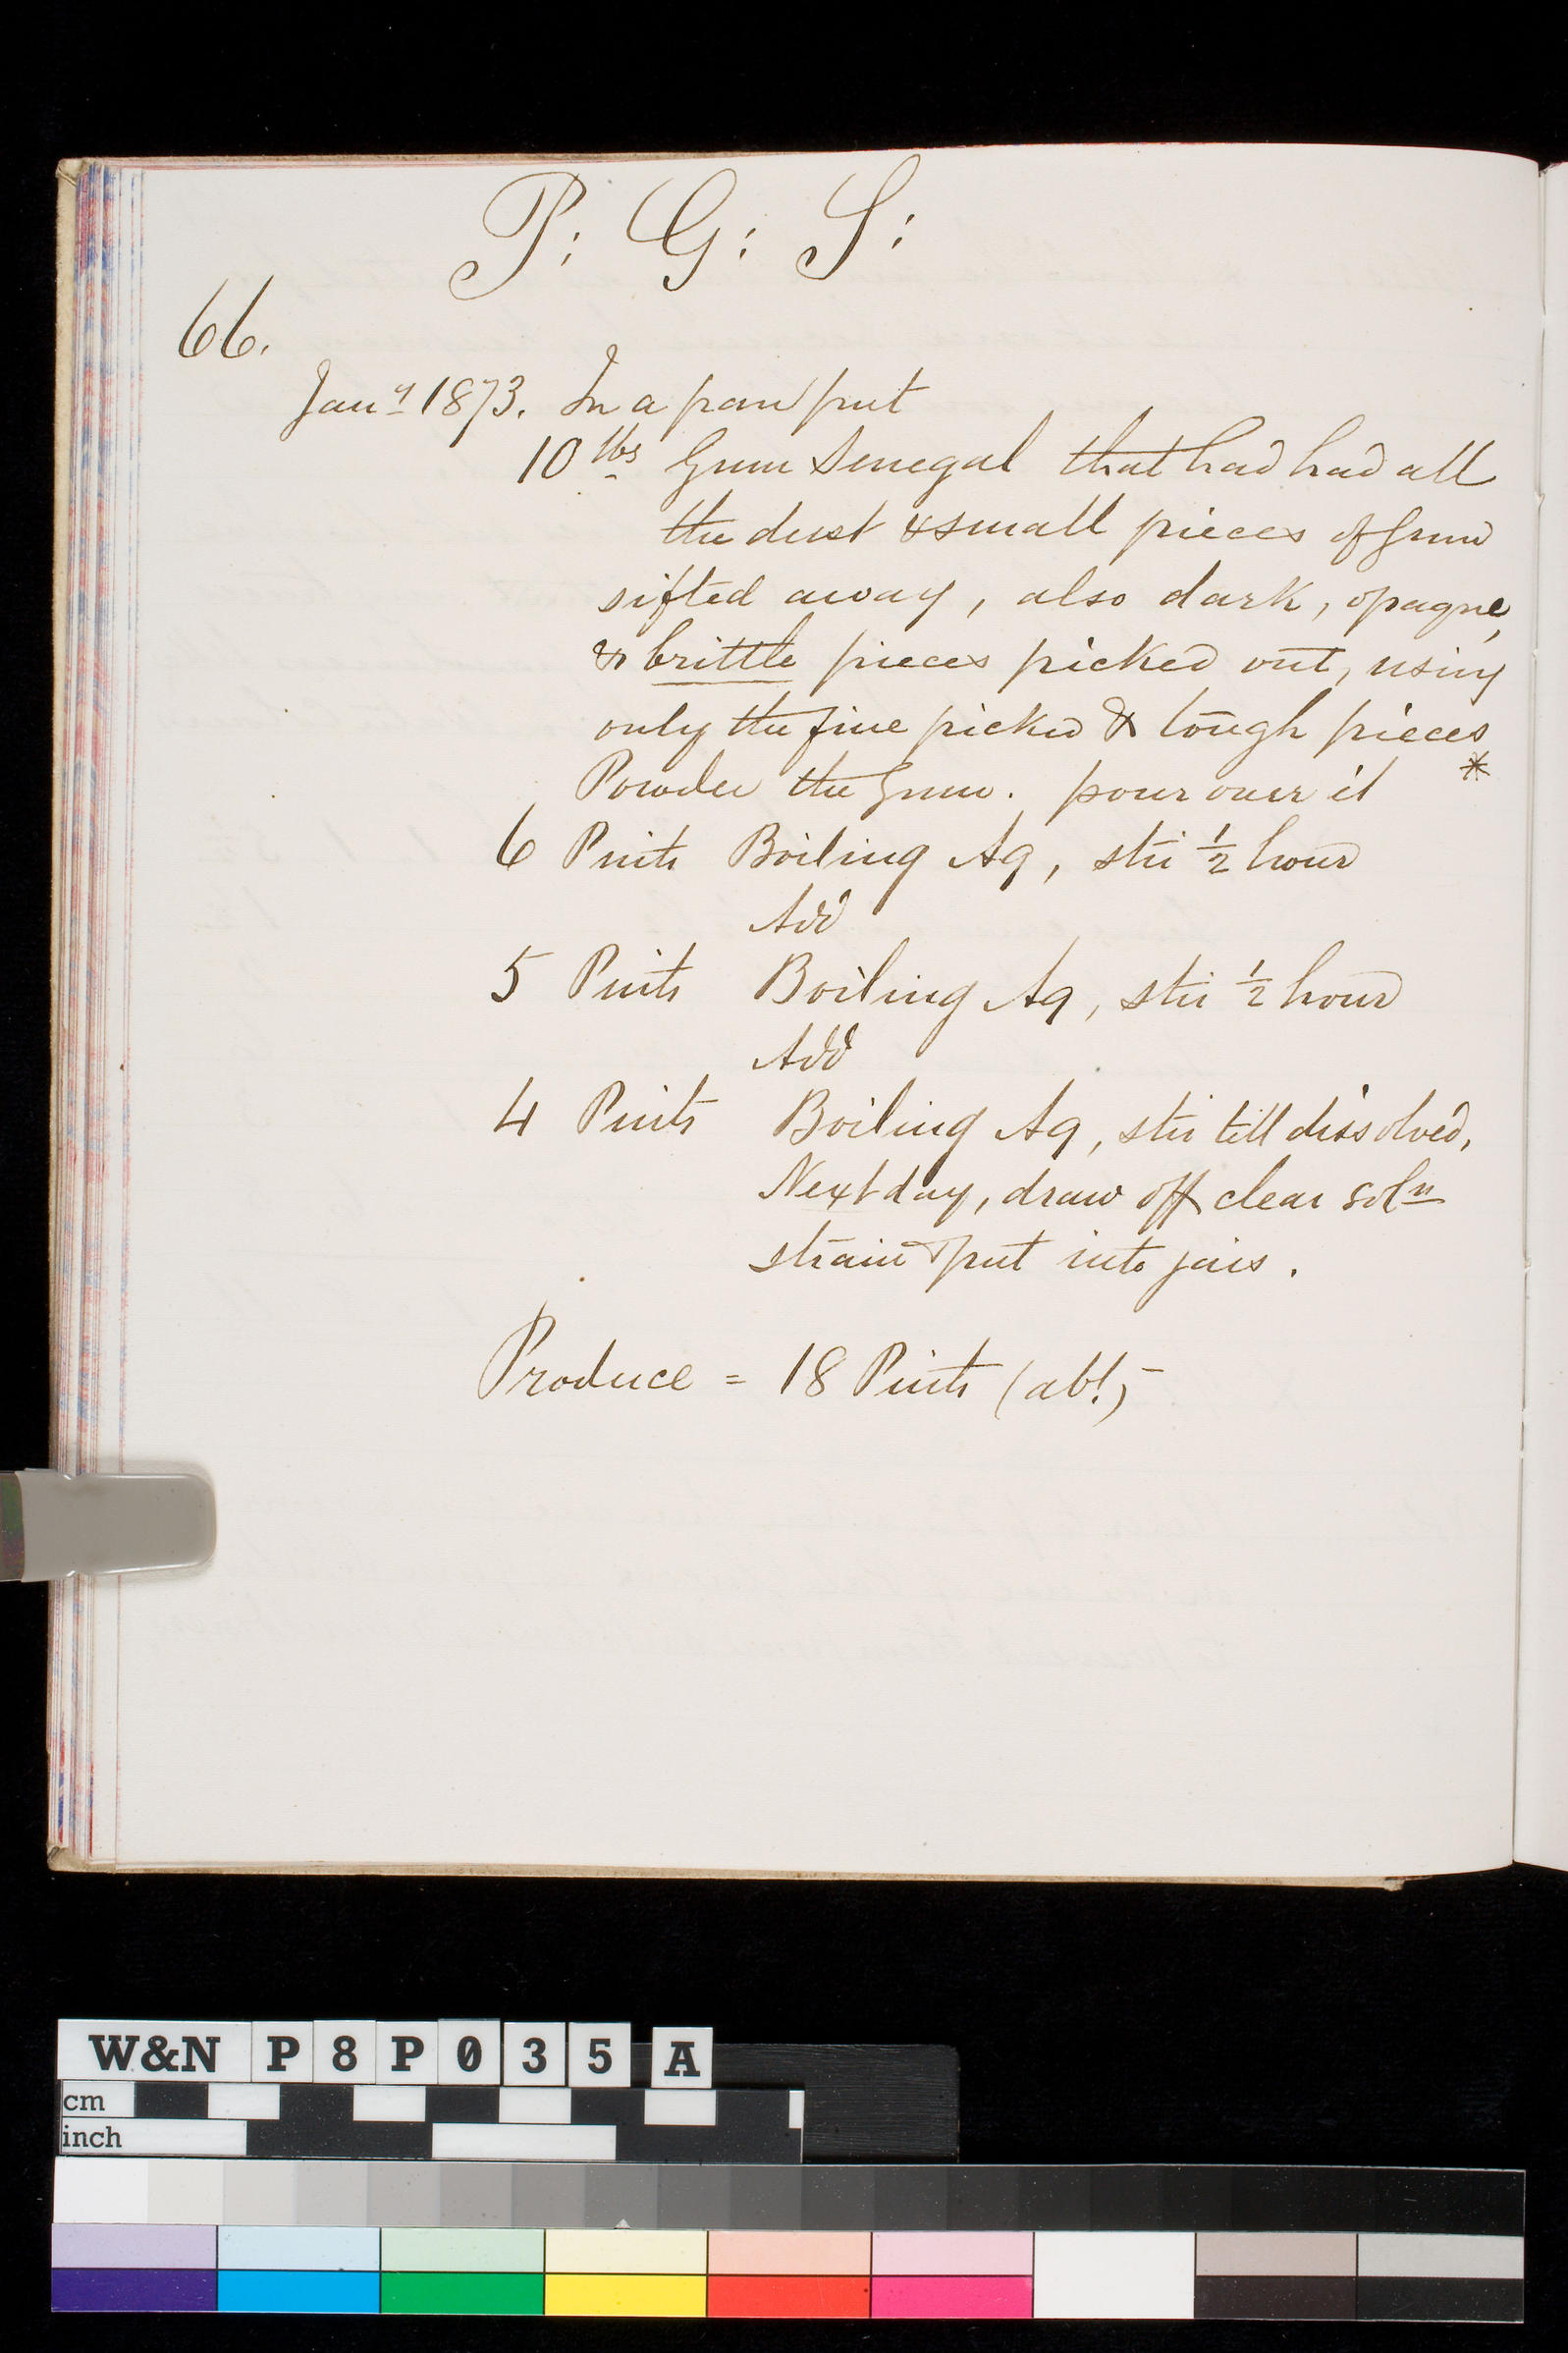 P: G: S:
66.
Jany 1873. In a pan put
10 lbs Gum Senegal that had had all
the dust & small pieces of Gum
sifted away, also dark, opaque,
& brittle pieces picked out, using
only the fine picked & tough pieces
Powder the Gum. pour over it *
6 Pints Boiling Aq, stir 1/2 hour
Add
5 Pints Boiling Aq, stir 1/2 hour
Add
4 Pints Boiling Aq, stir till dissolved,
Next day, draw off clear soln
strain & put into jars.
Produce = 18 Pints (abt)
W&N P8P035A
cm
inch